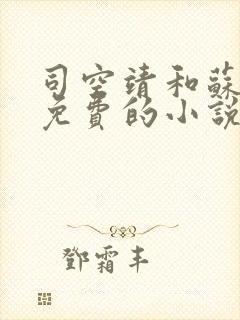 司空靖和蘇
免費的小說
鄧霜丰